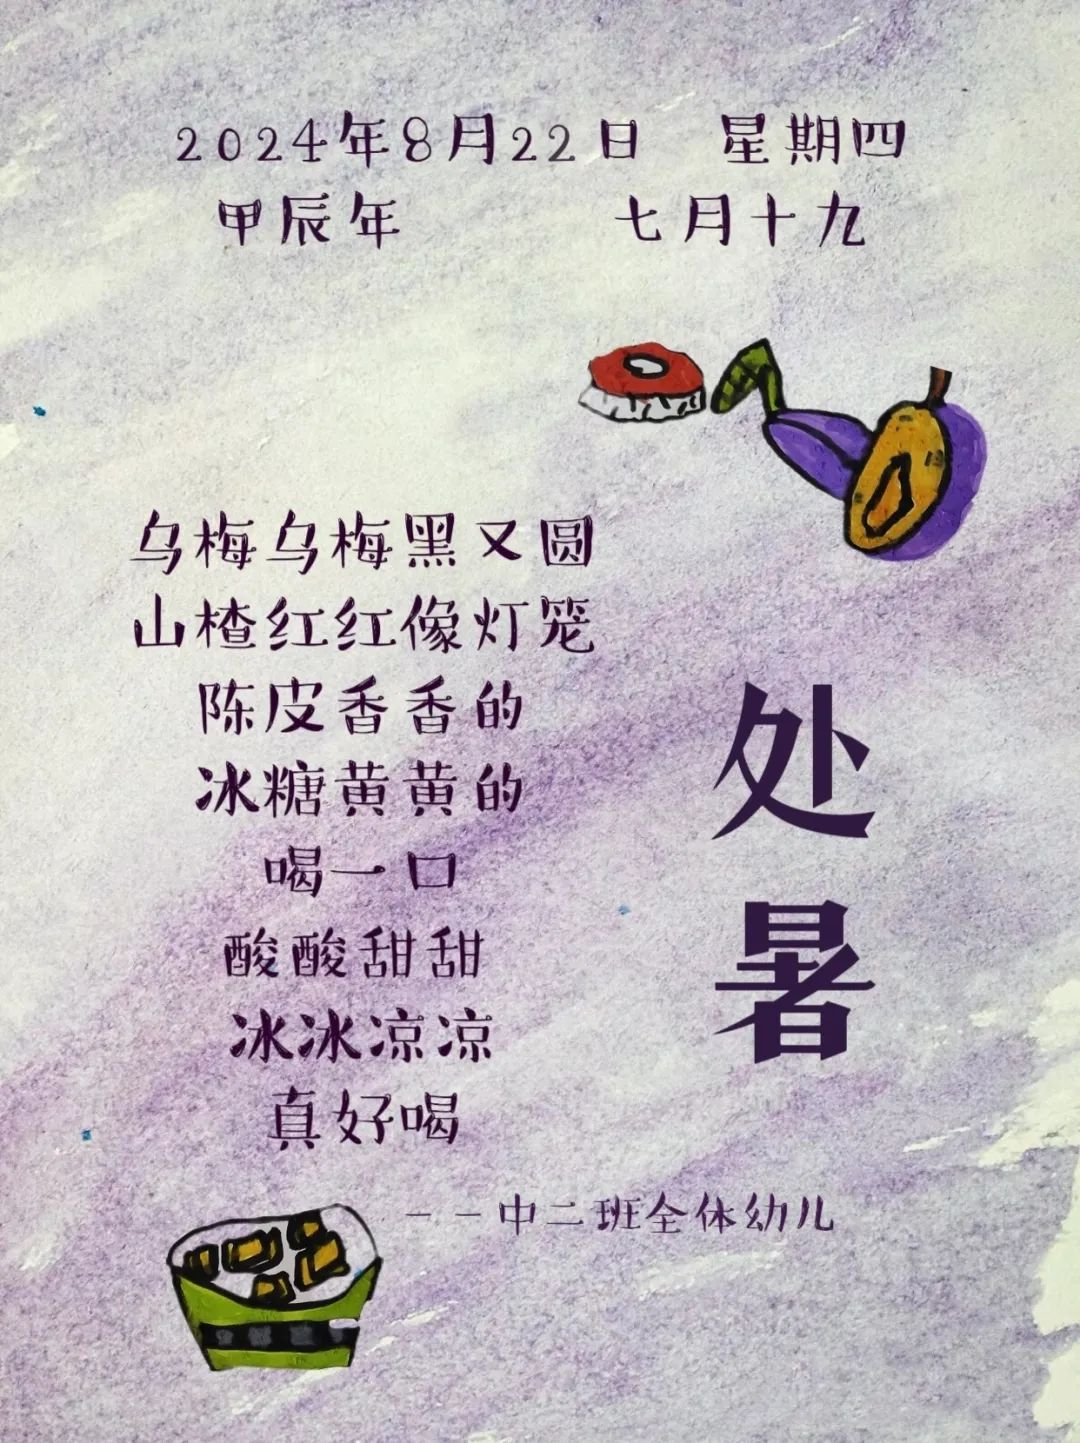 2024年8月22日 星期四
甲辰年 七月十九
乌梅乌梅黑又圆
山楂红红像灯笼
陈皮香香的
冰糖黄黄的
喝一口
酸酸甜甜
冰冰凉凉
真好喝
--中二班全体幼儿
处暑